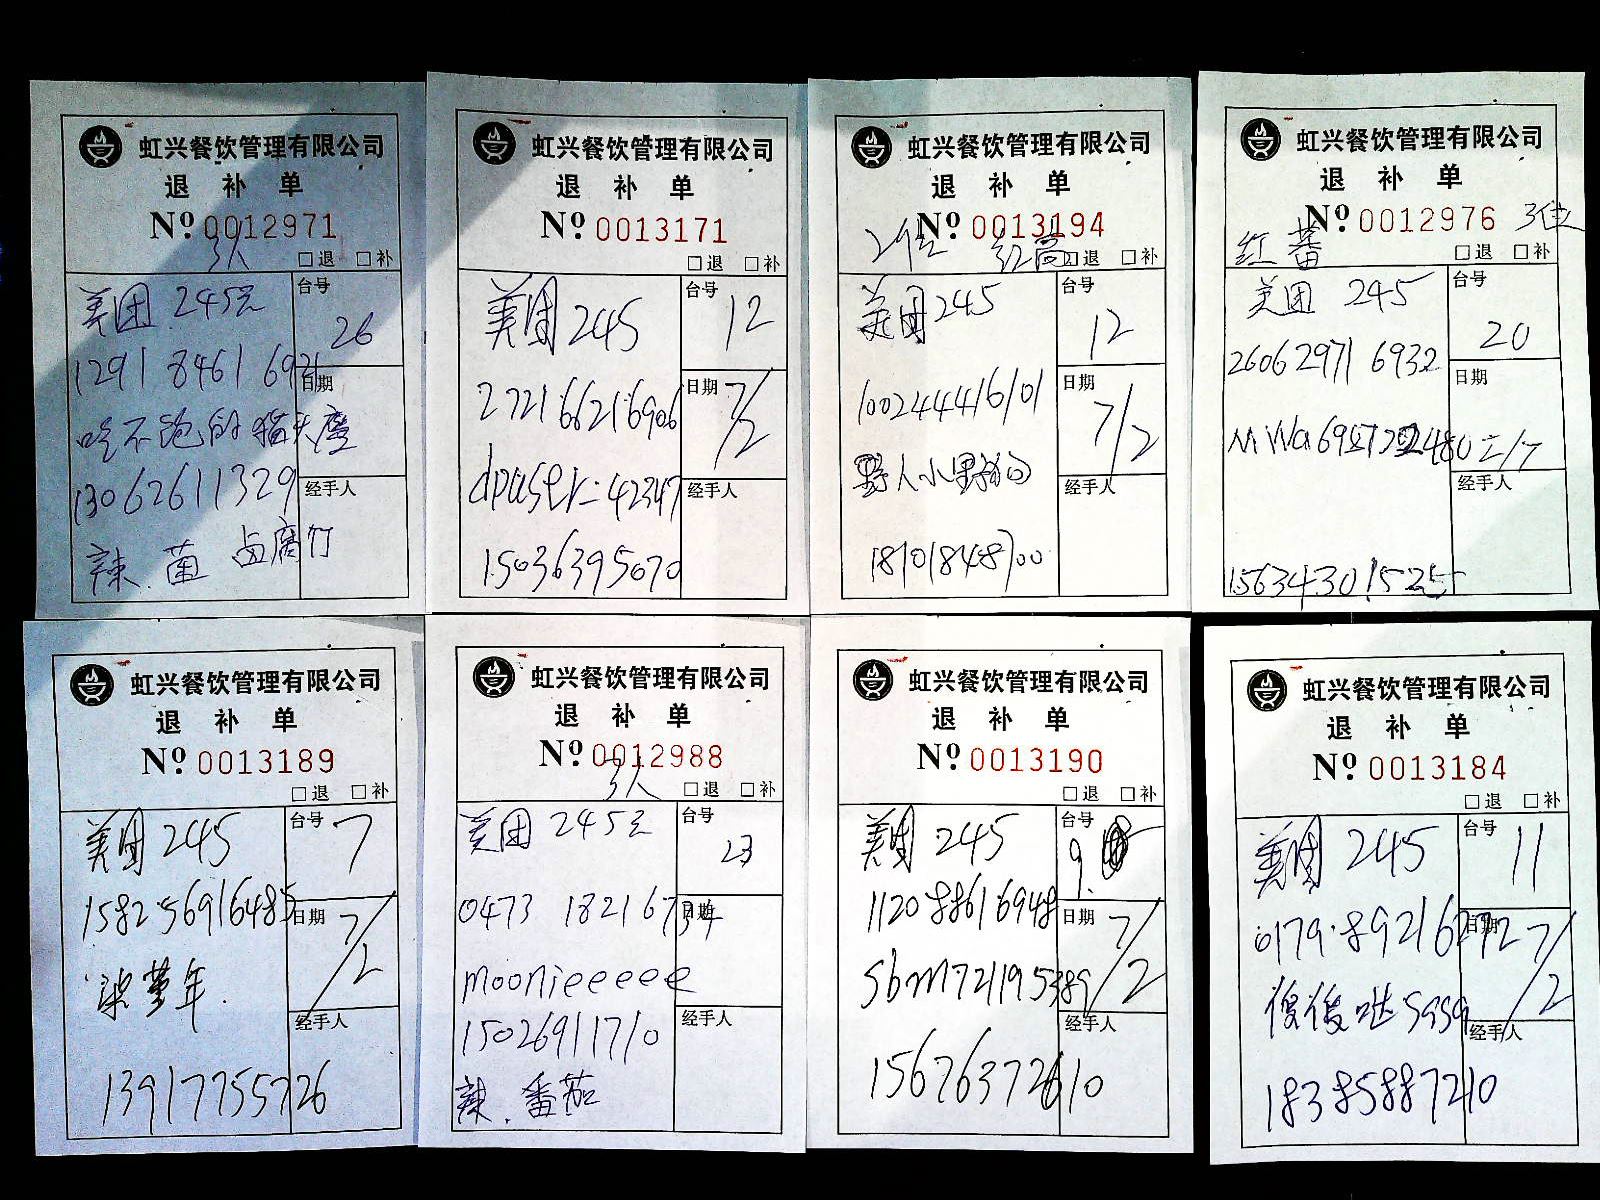 虹兴餐饮管理有限公司
退 补 单
Nº 0012971
3人
□退 □补
美团 245元
台号
26
1291 8461 6921
日期
吃不饱的猫头鹰
13062611329
经手人
辣 菌 卤腐竹
虹兴餐饮管理有限公司
退 补 单
Nº 0013171
□退 □补
美团 245
台号
12
272166216906
日期
7/2
dpuser-42347
经手人
15036395070
虹兴餐饮管理有限公司
退 补 单
Nº 0013194
2位
□退 □补
美团 245
台号
12
100244416101
日期
7/2
野人小野狗
经手人
18101848700
虹兴餐饮管理有限公司
退 补 单
Nº 0012976
3位
红 蕃
□退 □补
美团 245
台号
20
26062971 6932
日期
二/7
经手人
虹兴餐饮管理有限公司
退 补 单
Nº 0013189
□退 □补
美团 245
台号
7
158256916485
日期
7/2
经手人
13917755726
虹兴餐饮管理有限公司
退 补 单
Nº 0012988
3人
□退 □补
美团 245元
台号
23
0473 1821 6734
日期
moonieeeee
15026911710
经手人
辣.番茄
虹兴餐饮管理有限公司
退 补 单
Nº 0013190
□退 □补
美团 245
台号
9.
112088616948
日期
7/2
sbm721195389
经手人
虹兴餐饮管理有限公司
退 补 单
Nº 0013184
□退 □补
美团 245
台号
11
0179.89216272
日期
7/2
俊俊哒5959
经手人
18385887210